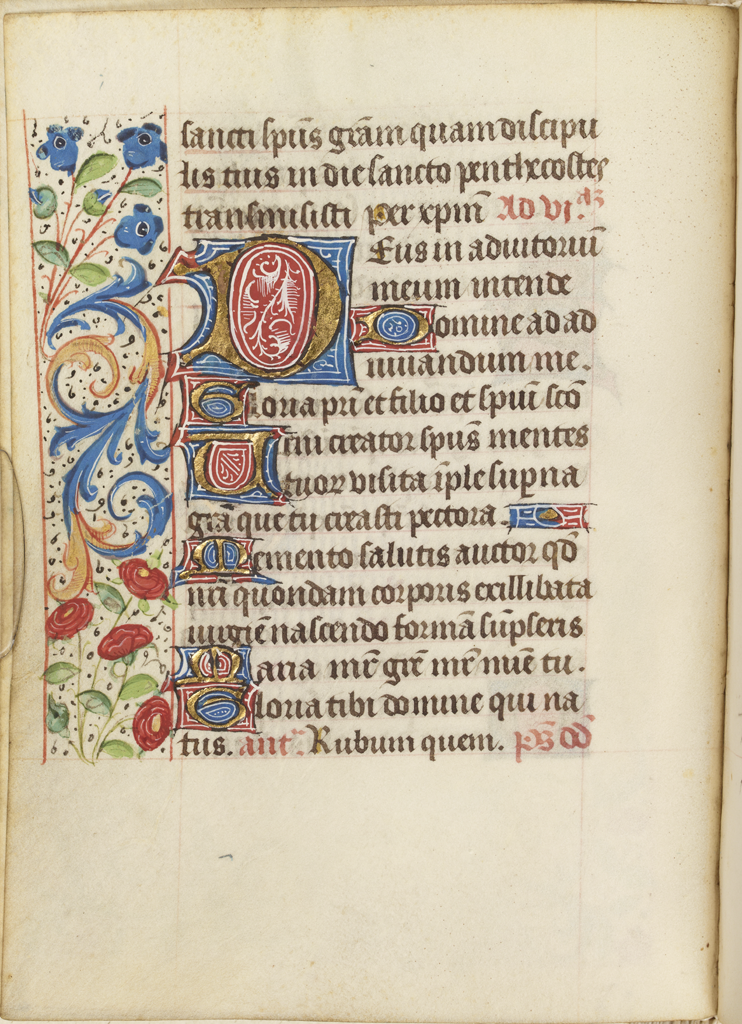 sancti spūs grām quam discipu
lis tuis in die sancto penthecostes
transmisisti per xpm̄ Ad vj.
Deus in adiutoriū
meum intende
Domine ad ad
iuuandum me.
Gloria pr̄i et filio et spūi scō
Ueni creator spūs mentes
tuorz visita īple suꝑna
grā que tu creasti pectora.
Memento salutis auctor qd̄
nr̄i quondam corporis ex illibata
uirgīe nascendo formā sūpseris
Maria mr̄ grē mr̄ mīe tu.
Gloria tibi domine qui na
tus. ant'. Rubum quem. ps̄